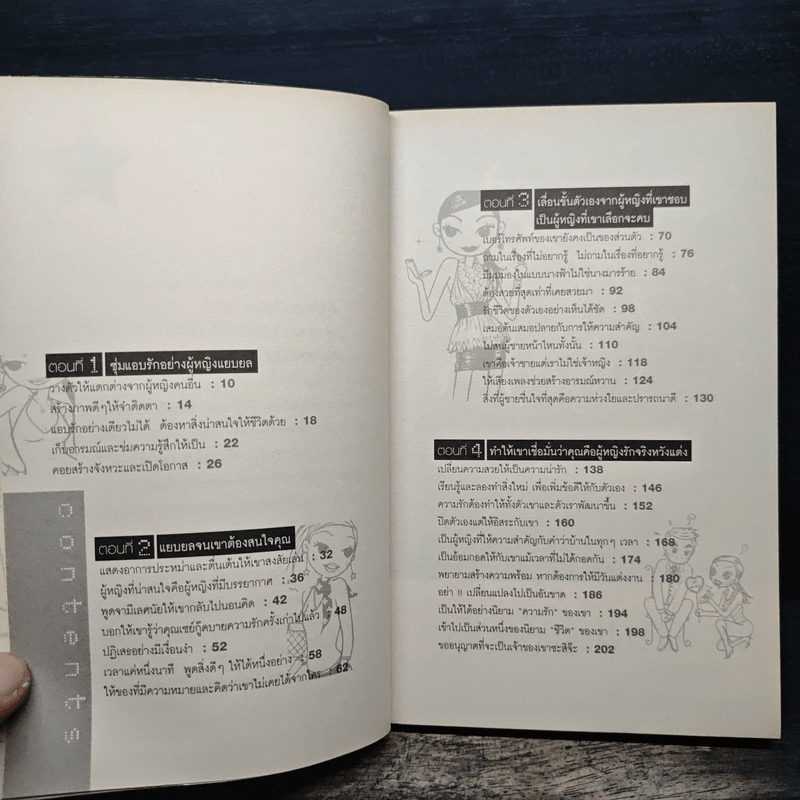 ตอนที่ 1 ซุ่มแอบรักอย่างผู้หญิงแยบยล
วางตัวให้แตกต่างจากผู้หญิงคนอื่น : 10
สร้างภาพดีๆให้จำติดตา : 14
แอบรักอย่างเดียวไม่ได้ ต้องหาสิ่งน่าสนใจให้ชีวิตด้วย : 18
เก็บอารมณ์และข่มความรู้สึกให้เป็น : 22
คอยสร้างจังหวะและเปิดโอกาส : 26
contents
ตอนที่ 2 แยบยลจนเขาต้องสนใจคุณ
แสดงอาการประหม่าและตื่นเต้นให้เขาสงสัยเล่น : 32
ผู้หญิงที่น่าสนใจคือผู้หญิงที่มีบรรยากาศ : 36
พูดจามีเลศนัยให้เขากลับไปนอนคิด : 42
บอกให้เขารู้ว่าคุณเซย์กู๊ดบายความรักครั้งเก่าไปแล้ว : 48
ปฏิเสธอย่างมีเงื่อนงำ : 52
เวลาแค่หนึ่งนาที พูดสิ่งดีๆ ให้ได้หนึ่งอย่าง : 58
ให้ของที่มีความหมายและคิดว่าเขาไม่เคยได้จากใคร : 62
ตอนที่ 3 เลื่อนขั้นตัวเองจากผู้หญิงที่เขาชอบ
เป็นผู้หญิงที่เขาเลือกจะคบ
เบอร์โทรศัพท์ของเขายังคงเป็นของส่วนตัว : 70
ถามในเรื่องที่ไม่อยากรู้ ไม่ถามในเรื่องที่อยากรู้ : 76
มีมุมมองในแบบนางฟ้าไม่ใช่นางมารร้าย : 84
ต้องสวยที่สุดเท่าที่เคยสวยมา : 92
รักชีวิตของตัวเองอย่างเห็นได้ชัด : 98
เสมอต้นเสมอปลายกับการให้ความสำคัญ : 104
ไม่สนผู้ชายหน้าไหนทั้งนั้น : 110
เขาคือเจ้าชายแต่เราไม่ใช่เจ้าหญิง : 118
ให้เสียงเพลงช่วยสร้างอารมณ์หวาน : 124
สิ่งที่ผู้ชายชื่นใจที่สุดคือความห่วงใยและปรารถนาดี : 130
ตอนที่ 4 ทำให้เขาเชื่อมั่นว่าคุณคือผู้หญิงรักจริงหวังแต่ง
เปลี่ยนความสวยให้เป็นความน่ารัก : 138
เรียนรู้และลองทำสิ่งใหม่ เพื่อเพิ่มข้อดีให้กับตัวเอง : 146
ความรักต้องทำให้ทั้งตัวเขาและตัวเราพัฒนาขึ้น : 152
ปิดตัวเองแต่ให้อิสระกับเขา : 160
เป็นผู้หญิงที่ให้ความสำคัญกับคำว่าบ้านในทุกๆ เวลา : 168
เป็นอ้อมกอดให้กับเขาแม้เวลาที่ไม่ได้กอดกัน : 174
พยายามสร้างความพร้อม หากต้องการให้มีวันแต่งงาน : 180
อย่า !! เปลี่ยนแปลงไปเป็นอันขาด : 186
เป็นให้ได้อย่างนิยาม "ความรัก" ของเขา : 194
เข้าไปเป็นส่วนหนึ่งของนิยาม "ชีวิต" ของเขา : 198
ขออนุญาตที่จะเป็นเจ้าของเขาซะสิจ๊ะ : 202